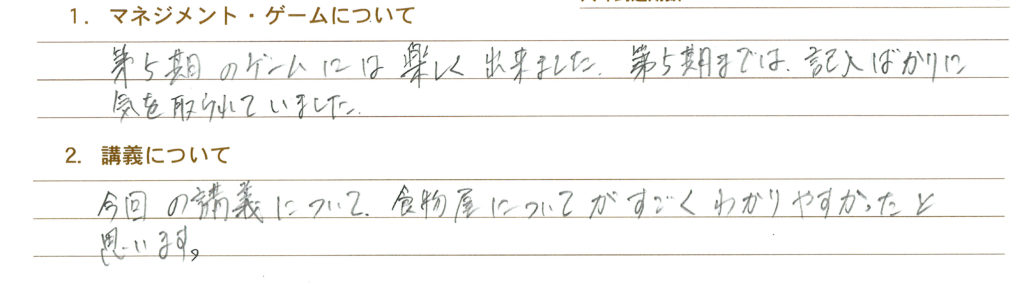 1. マネジメント・ゲームについて
第5期のゲームには楽しく出来ました. 第5期までは、記入ばかりに
気を取られていました.
2. 講義について
今回の講義について、食物屋についてがすごくわかりやすかったと
思います。